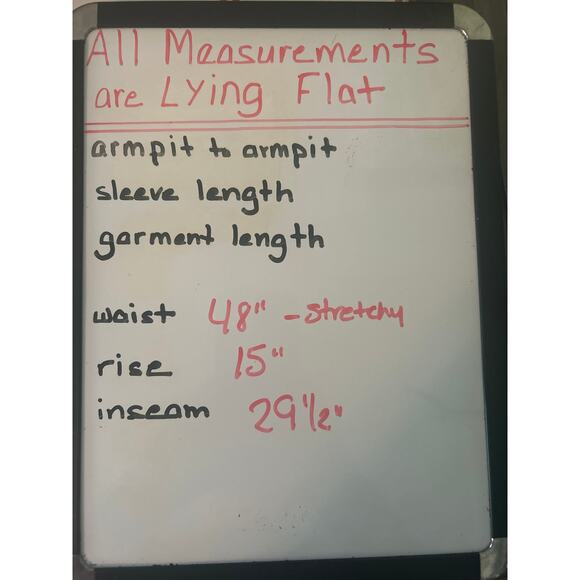 All Measurements
are Lying Flat
armpit to armpit
sleeve length
garment length
waist 48" - Stretchy
rise 15"
inseam 29 1/2"